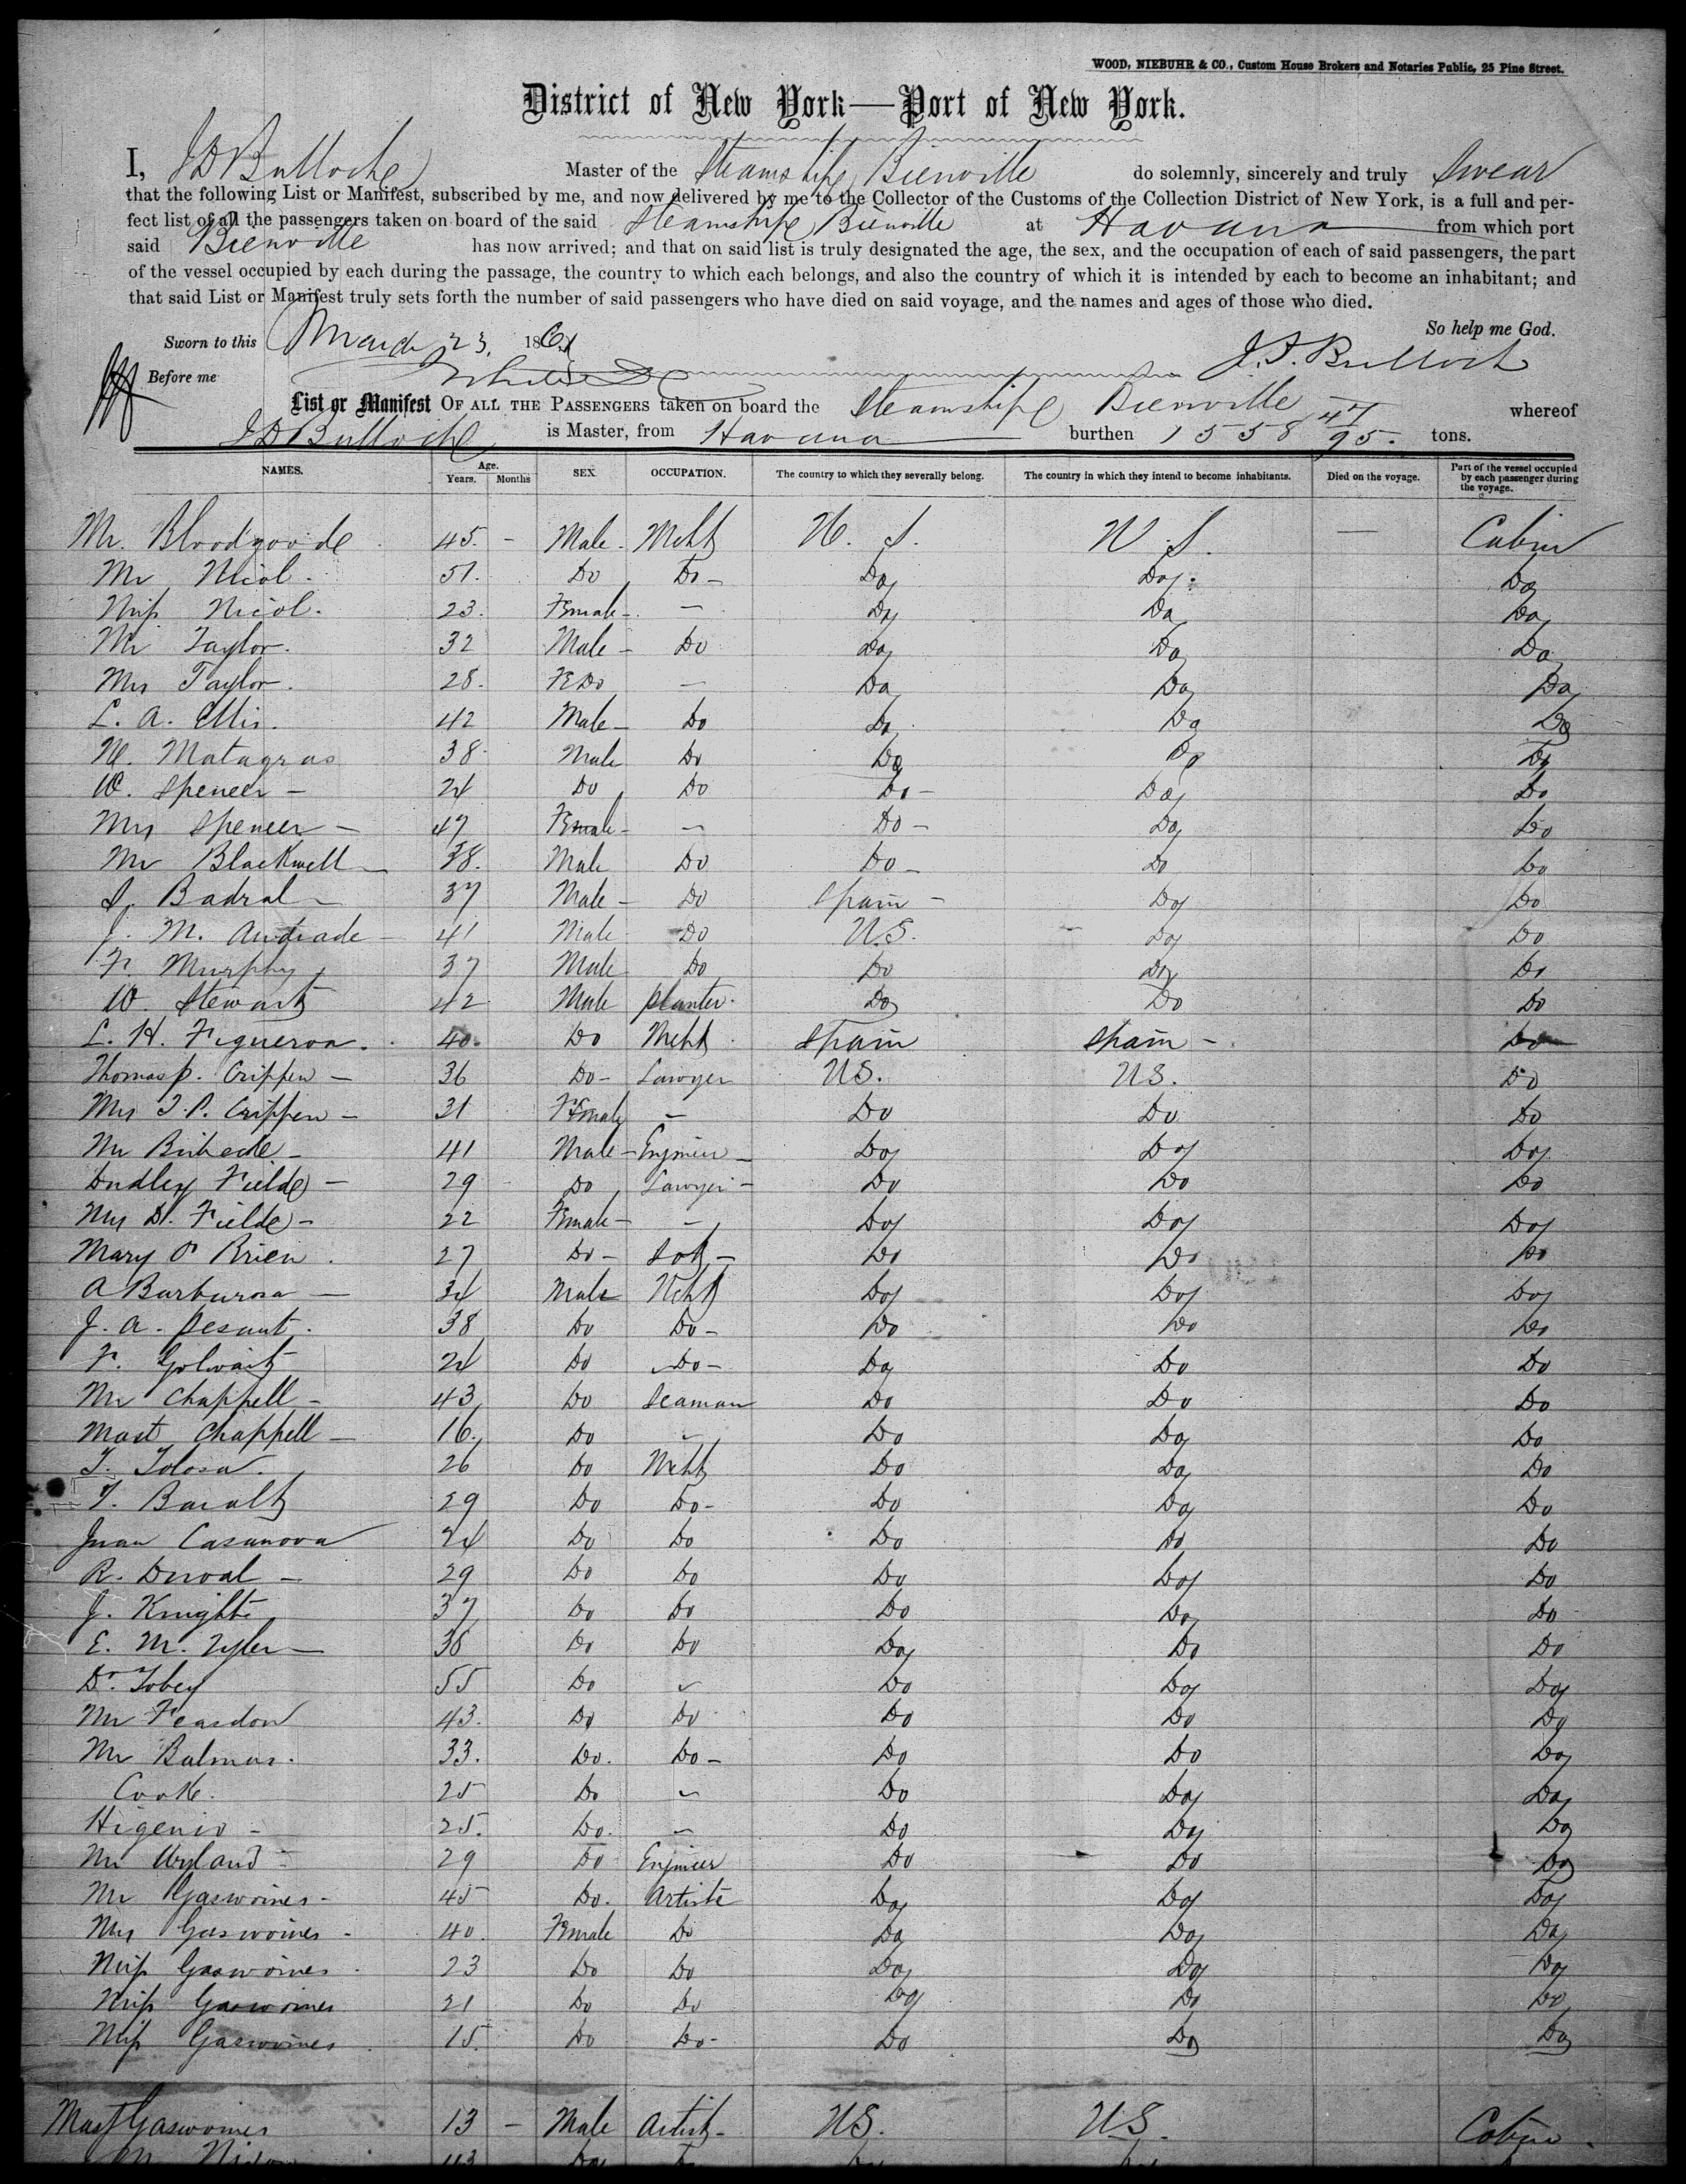 WOOD, NIEBUHR & CO., Custom House Brokers and Notaries Public, 25 Pine Street.
District of New York—Port of New York.
I, J D Bulloch Master of the Steamship Bienville do solemnly, sincerely and truly Swear
that the following List or Manifest, subscribed by me, and now delivered by me to the Collector of the Customs of the Collection District of New York, is a full and per-
fect list of all the passengers taken on board of the said Steamship Bienville at Havana from which port
said Bienville has now arrived; and that on said list is truly designated the age, the sex, and the occupation of each of said passengers, the part
of the vessel occupied by each during the passage, the country to which each belongs, and also the country of which it is intended by each to become an inhabitant; and
that said List or Manifest truly sets forth the number of said passengers who have died on said voyage, and the names and ages of those who died.
So help me God.
Sworn to this March 23, 1861
J. D. Bulloch
Before me
List or Manifest OF ALL THE PASSENGERS taken on board the Steamship Bienville whereof
J D Bulloch is Master, from Havana burthen 1558 47/95 tons.
NAMES. Age. Years. Months SEX OCCUPATION. The country to which they severally belong. The country in which they intend to become inhabitants. Died on the voyage. Part of the vessel occupied by each passenger during the voyage.
Mr. Bloodgoode 45. - Male - Mcht U. S. U. S. — Cabin
Mr Nicol. 51. Do Do - Do Do. Do
Miss Nicol. 23. Female - — Do Do Do
Mr Taylor. 32 Male - Do Do Do Do
Mrs Taylor. 28. FeDo — Do Do Do
L. A. Ellis. 42 Male - Do Do Do Do
M. Matagras 38. Male Do Do Do Do
W. Spencer - 24 Do Do Do - Do Do
Mrs Spencer - 47 Female - — Do - Do Do
Mr Blackwell - 38. Male Do Do - Do Do
S. Badral - 37 Male - Do Spain - Do Do
J. M. Andrade - 41 Male Do U.S. Do Do
F. Murphy 37 Male Do Do Do Do
W Stewart 42 Male planter. Do Do Do
L. H. Figueroa. 40. Do Mcht Spain Spain - Do
Thomas P. Crippen - 36 Do - Lawyer US. US. Do
Mrs T. P. Crippen - 31 Female — Do Do Do
Mr - 41 Male - Engineer - Do Do Do
Dudley Fielde - 29 Do Lawyer - Do Do Do
Mrs D. Fielde - 22 Female - — Do Do Do
Mary O Brien. 27 Do - - Do Do Do
A Barburosa - 34 Male Mcht Do Do Do
J. A. Pesant. 38 Do Do - Do Do Do
F. Golwait 24 Do Do - Do Do Do
Mr Chappell - 43 Do Seaman Do Do Do
Mast Chappell - 16 Do — Do Do Do
T. Tolosa. 26 Do Mcht Do Do Do
T. Baralt 29 Do Do - Do Do Do
Juan Casanova 24 Do Do Do Do Do
R. Duval - 29 Do Do Do Do Do
J. Knight 37 Do Do Do Do Do
E. M. Tyler - 38 Do Do Do Do Do
Dr. Tobey 55 Do — Do Do Do
Mr Feasdon 43. Do Do Do Do Do
Mr Balmas. 33. Do. Do - Do Do Do
Cook. 25 Do — Do Do Do
Higenio - 25. Do. — Do Do Do
Mr Wyland - 29 Do Engineer Do Do Do
Mr Gaswoines - 45 Do. Artiste Do Do Do
Mrs Gaswoines - 40. Female Do Do Do Do
Miss Gaswoines. 23 Do Do Do Do Do
Miss Gaswoines 21 Do Do Do Do Do
Miss Gaswoines. 15. Do Do - Do Do Do
Mast Gaswoines 13 - Male Artist - US. US. Cabin.